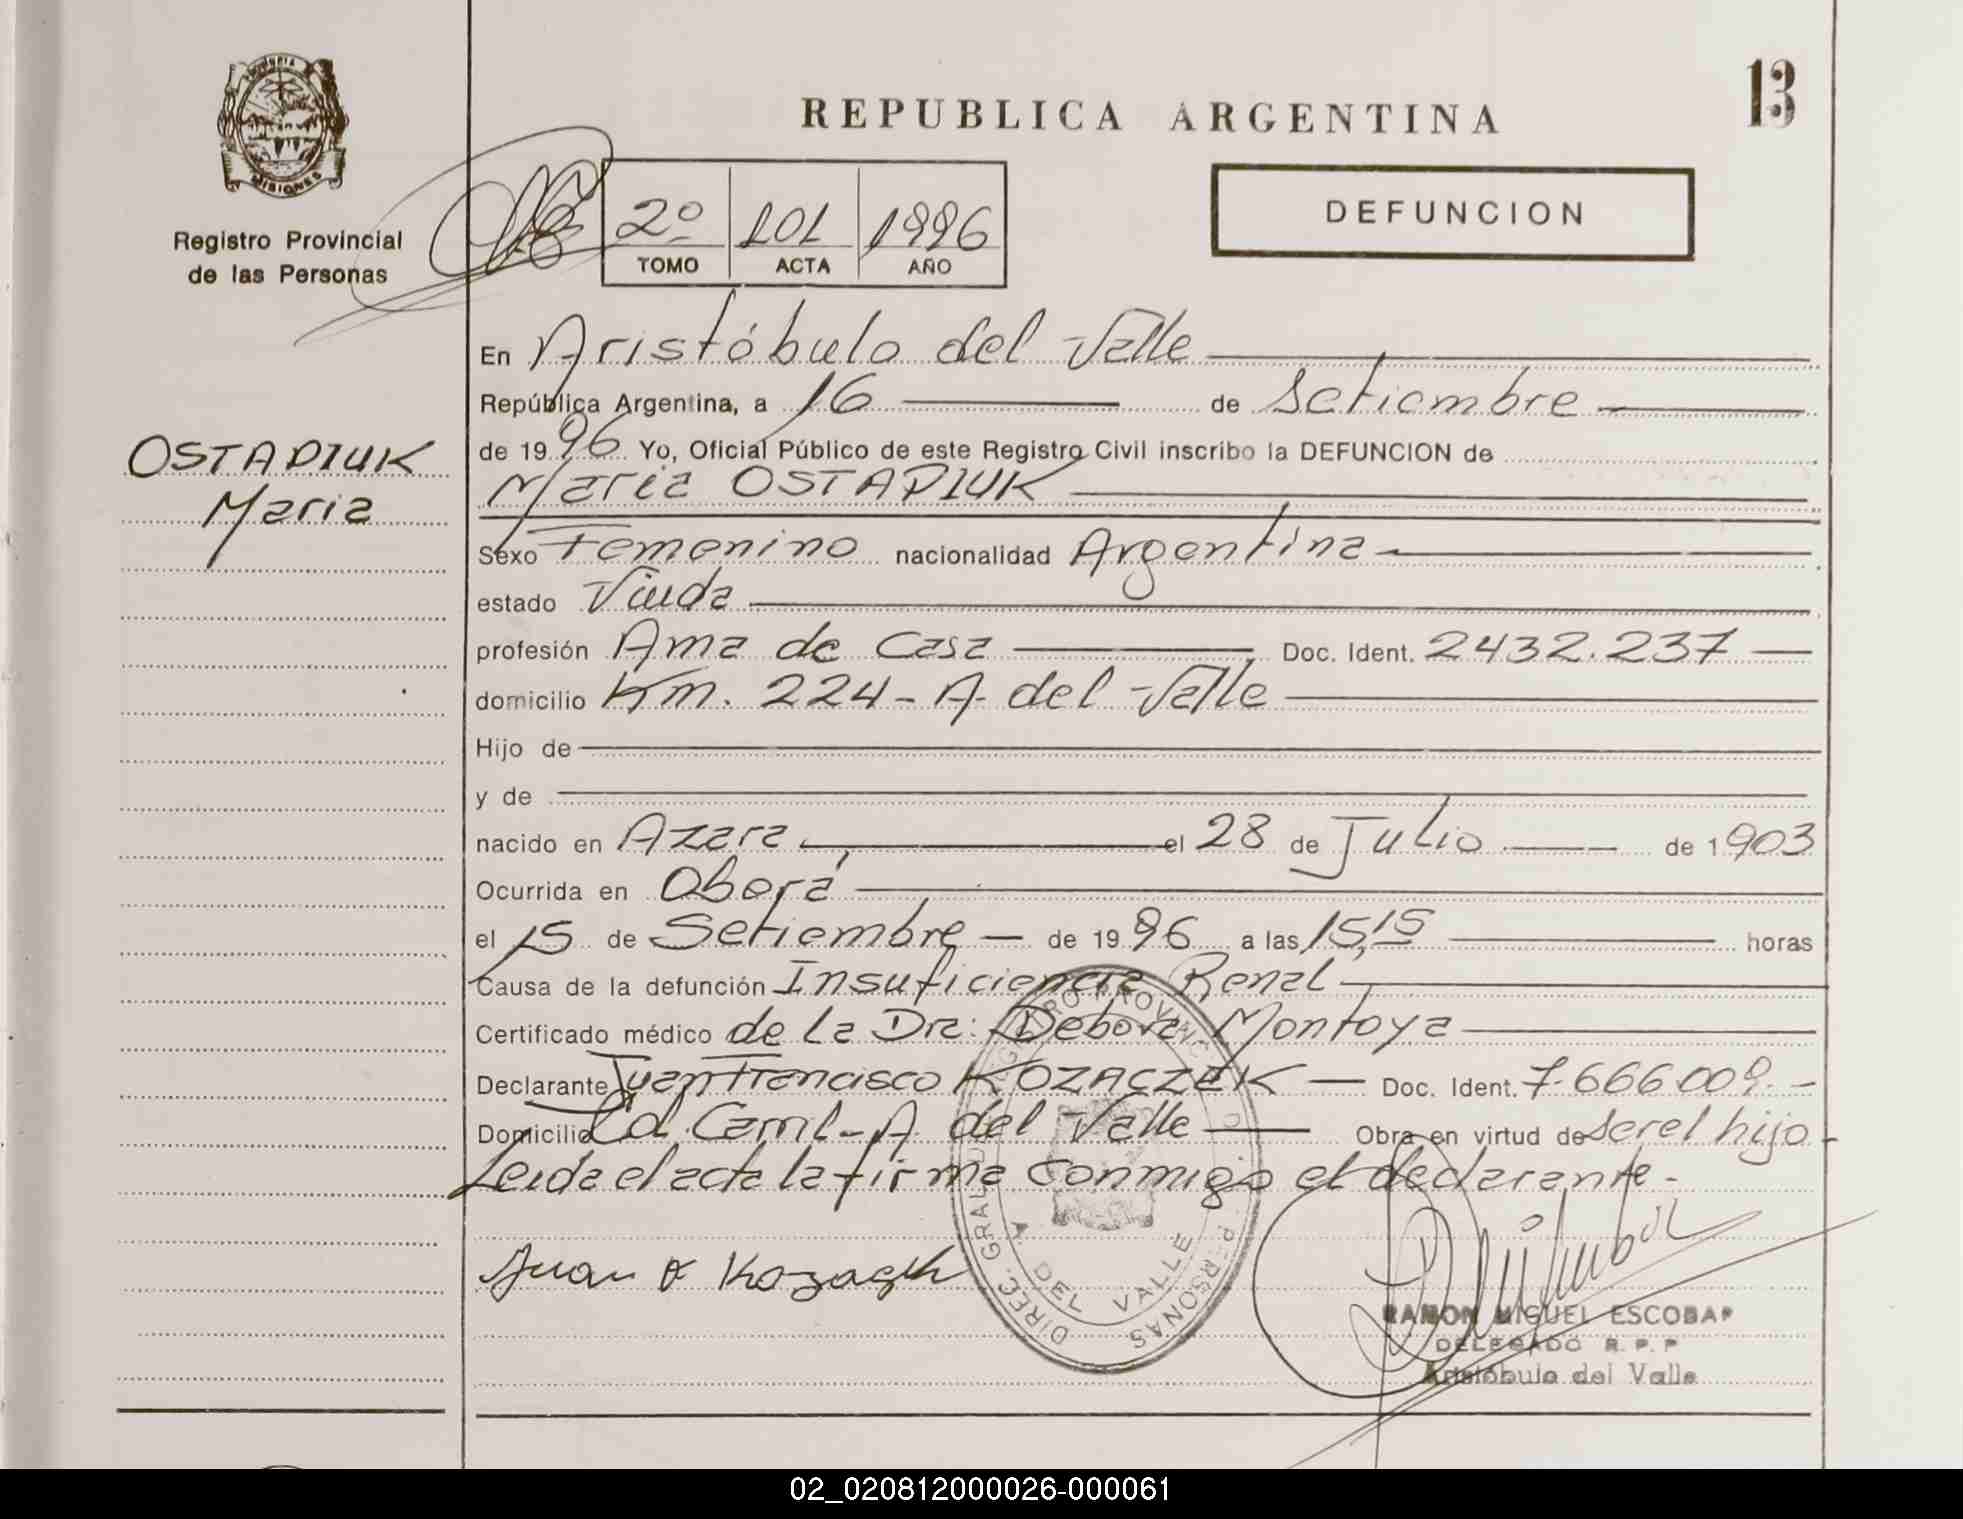 13
REPUBLICA ARGENTINA
MISIONES
Registro Provincial
de las Personas
2º 101 1996
TOMO ACTA AÑO
DEFUNCION
En Aristóbulo del Valle
República Argentina, a 16 de Setiembre
OSTAPIUK
Maria
de 1996 Yo, Oficial Público de este Registro Civil inscribo la DEFUNCION de
Maria OSTAPIUK
Sexo Femenino nacionalidad Argentina
estado Viuda
profesión Ama de Casa Doc. Ident. 2432.237
domicilio Km. 224 - A. del Valle
Hijo de
y de
nacido en Azara el 28 de Julio de 1903
Ocurrida en Oberá
el 15 de Setiembre de 1996 a las 15,15 horas
Causa de la defunción Insuficiencia Renal
Certificado médico de la Dra: Debora Montoya
Declarante Juan Francisco KOZACZEK Doc. Ident. 7.666009.
Domicilio Cd. Caml - A. del Valle Obra en virtud de ser el hijo
Leida el acta la firma conmigo el declarante.
Juan F Kozaczk
DIREC. GRAL. PROVINC PERSONAS
A. DEL VALLE
RAMON MIGUEL ESCOBAR
DELEGADO R. P. P
Aristóbulo del Valle
02_020812000026-000061